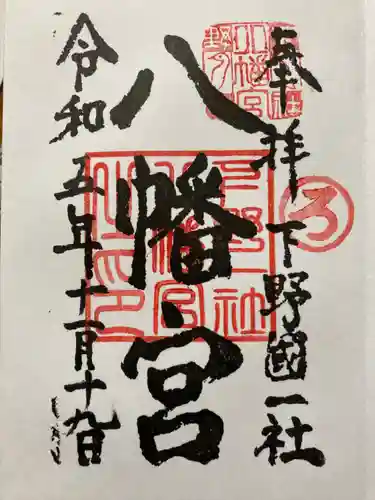 奉拝 下野國一社
八幡宮
令和五年十一月十九日